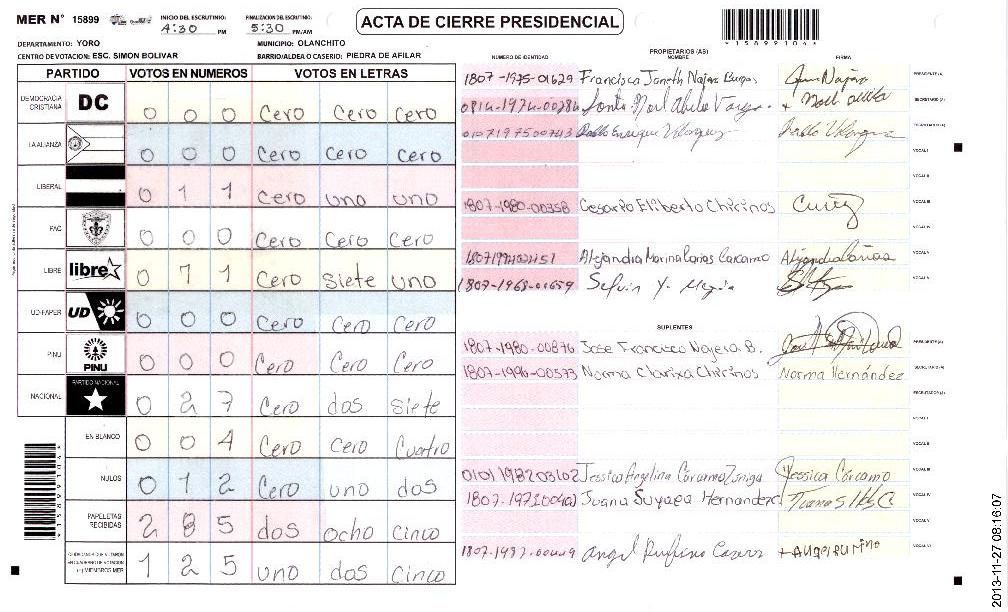 MER Nº 15899
INICIO DEL ESCRUTINIO: 4:30 PM
FINALIZACION DEL ESCRUTINIO: 5:30 PM/AM
ACTA DE CIERRE PRESIDENCIAL
*15899104*
DEPARTAMENTO: YORO
MUNICIPIO: OLANCHITO
CENTRO DE VOTACION: ESC. SIMON BOLIVAR
BARRIO/ALDEA O CASERIO: PIEDRA DE AFILAR
PARTIDO VOTOS EN NUMEROS VOTOS EN LETRAS
DEMOCRACIA CRISTIANA DC 0 0 0 Cero Cero Cero
LA ALIANZA 0 0 0 Cero Cero Cero
LIBERAL 0 1 1 Cero uno uno
PAC 0 0 0 Cero Cero Cero
LIBRE libre 0 7 1 Cero Siete uno
UD-FAPER UD 0 0 0 Cero Cero Cero
PINU PINU 0 0 0 Cero Cero Cero
NACIONAL PARTIDO NACIONAL 0 2 7 Cero dos siete
EN BLANCO 0 0 4 Cero cero Cuatro
NULOS 0 1 2 Cero uno dos
PAPELETAS RECIBIDAS 2 8 5 dos ocho Cinco
1 2 5 uno dos Cinco
PROPIETARIOS (AS)
NUMERO DE IDENTIDAD NOMBRE FIRMA
1807-1975-01629 Francisca Janeth Najera Burgos PRESIDENTE (A)
SECRETARIO (A)
Pablo Enrique Pablo
VOCAL I
VOCAL II
1807-1980-00358 Cesario Eliberto Chirinos VOCAL III
VOCAL IV
Alejandra Marina Carias Carcamo Alejandra Carias VOCAL V
1807-1968-01659
SUPLENTES
1807-1980-00876 Jose Francisco Najera B. PRESIDENTE (A)
Norma Clarixa Chirinos Norma Hernández SECRETARIO (A)
ESCRUTADOR (A)
VOCAL I
VOCAL II
Jessica Angelina Carcamo Zuniga Jessica Carcamo VOCAL III
Juana Suyapa Hernandez VOCAL IV
VOCAL V
Angel Rufino VOCAL VI
2013-11-27 08:16:07